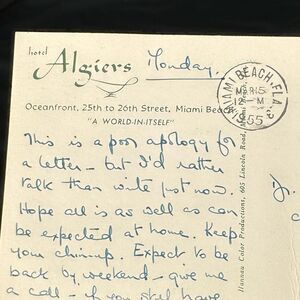 hotel
Algiers
Monday.
Oceanfront, 25th to 26th Street, Miami Beach
"A WORLD-IN-ITSELF"
MIAMI BEACH, FLA. 3
MAR 5
12 - M
1955
This is a poor apology for
a letter - but I'd rather
talk than write just now.
Hope all is as well as can
be expected at home. Keep
your chin up. Expect to be
back by weekend - give me
a call - if you still have
Hannau Color Productions, 605 Lincoln Road, Miami Beach